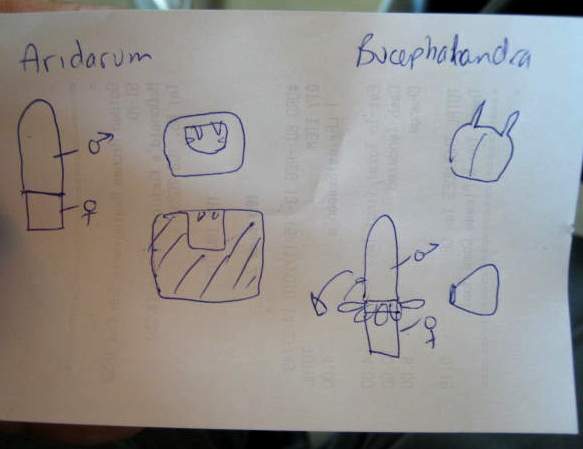 Aridarum
Bucephalandra
♂
♀
♂
♀